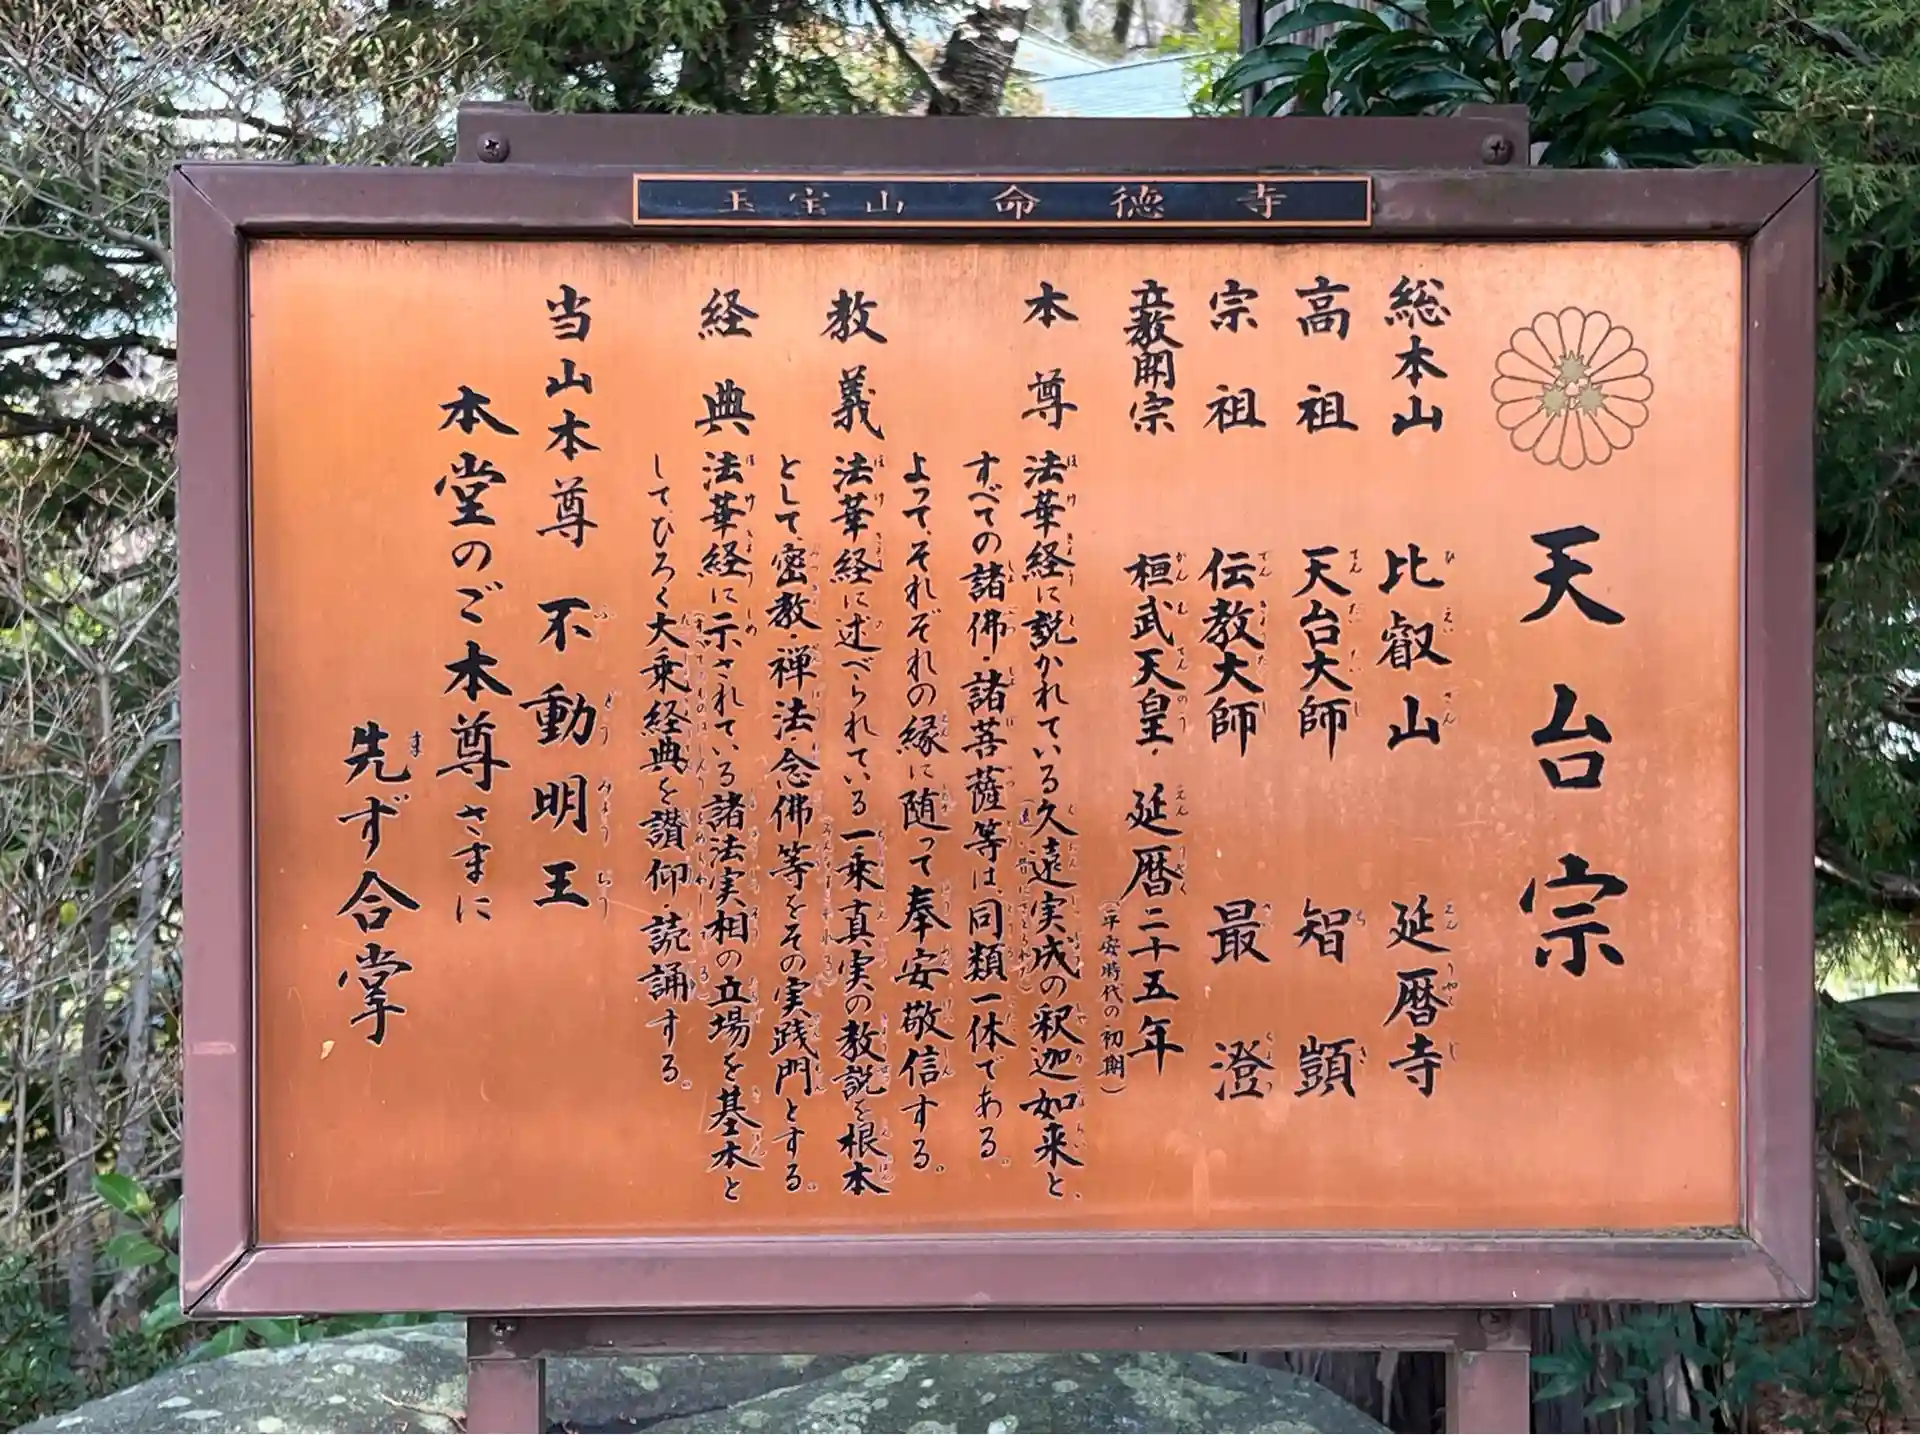 玉宝山 命徳寺
天台宗
総本山 比叡山 延暦寺
高祖 天台大師 智顗
宗祖 伝教大師 最澄
立教開宗 桓武天皇・延暦二十五年
（平安時代の初期）
本尊 法華経に説かれている久遠実成の釈迦如来と、
すべての諸佛・諸菩薩等は、同類一体である。
よって、それぞれの縁に随って奉安敬信する。
教義 法華経に述べられている一乗真実の教説を根本
として、密教・禅法・念佛等をその実践門とする。
経典 法華経に示されている諸法実相の立場を基本と
して、ひろく大乗経典を讃仰・読誦する。
当山本尊 不動明王
本堂のご本尊さまに
先ず合掌